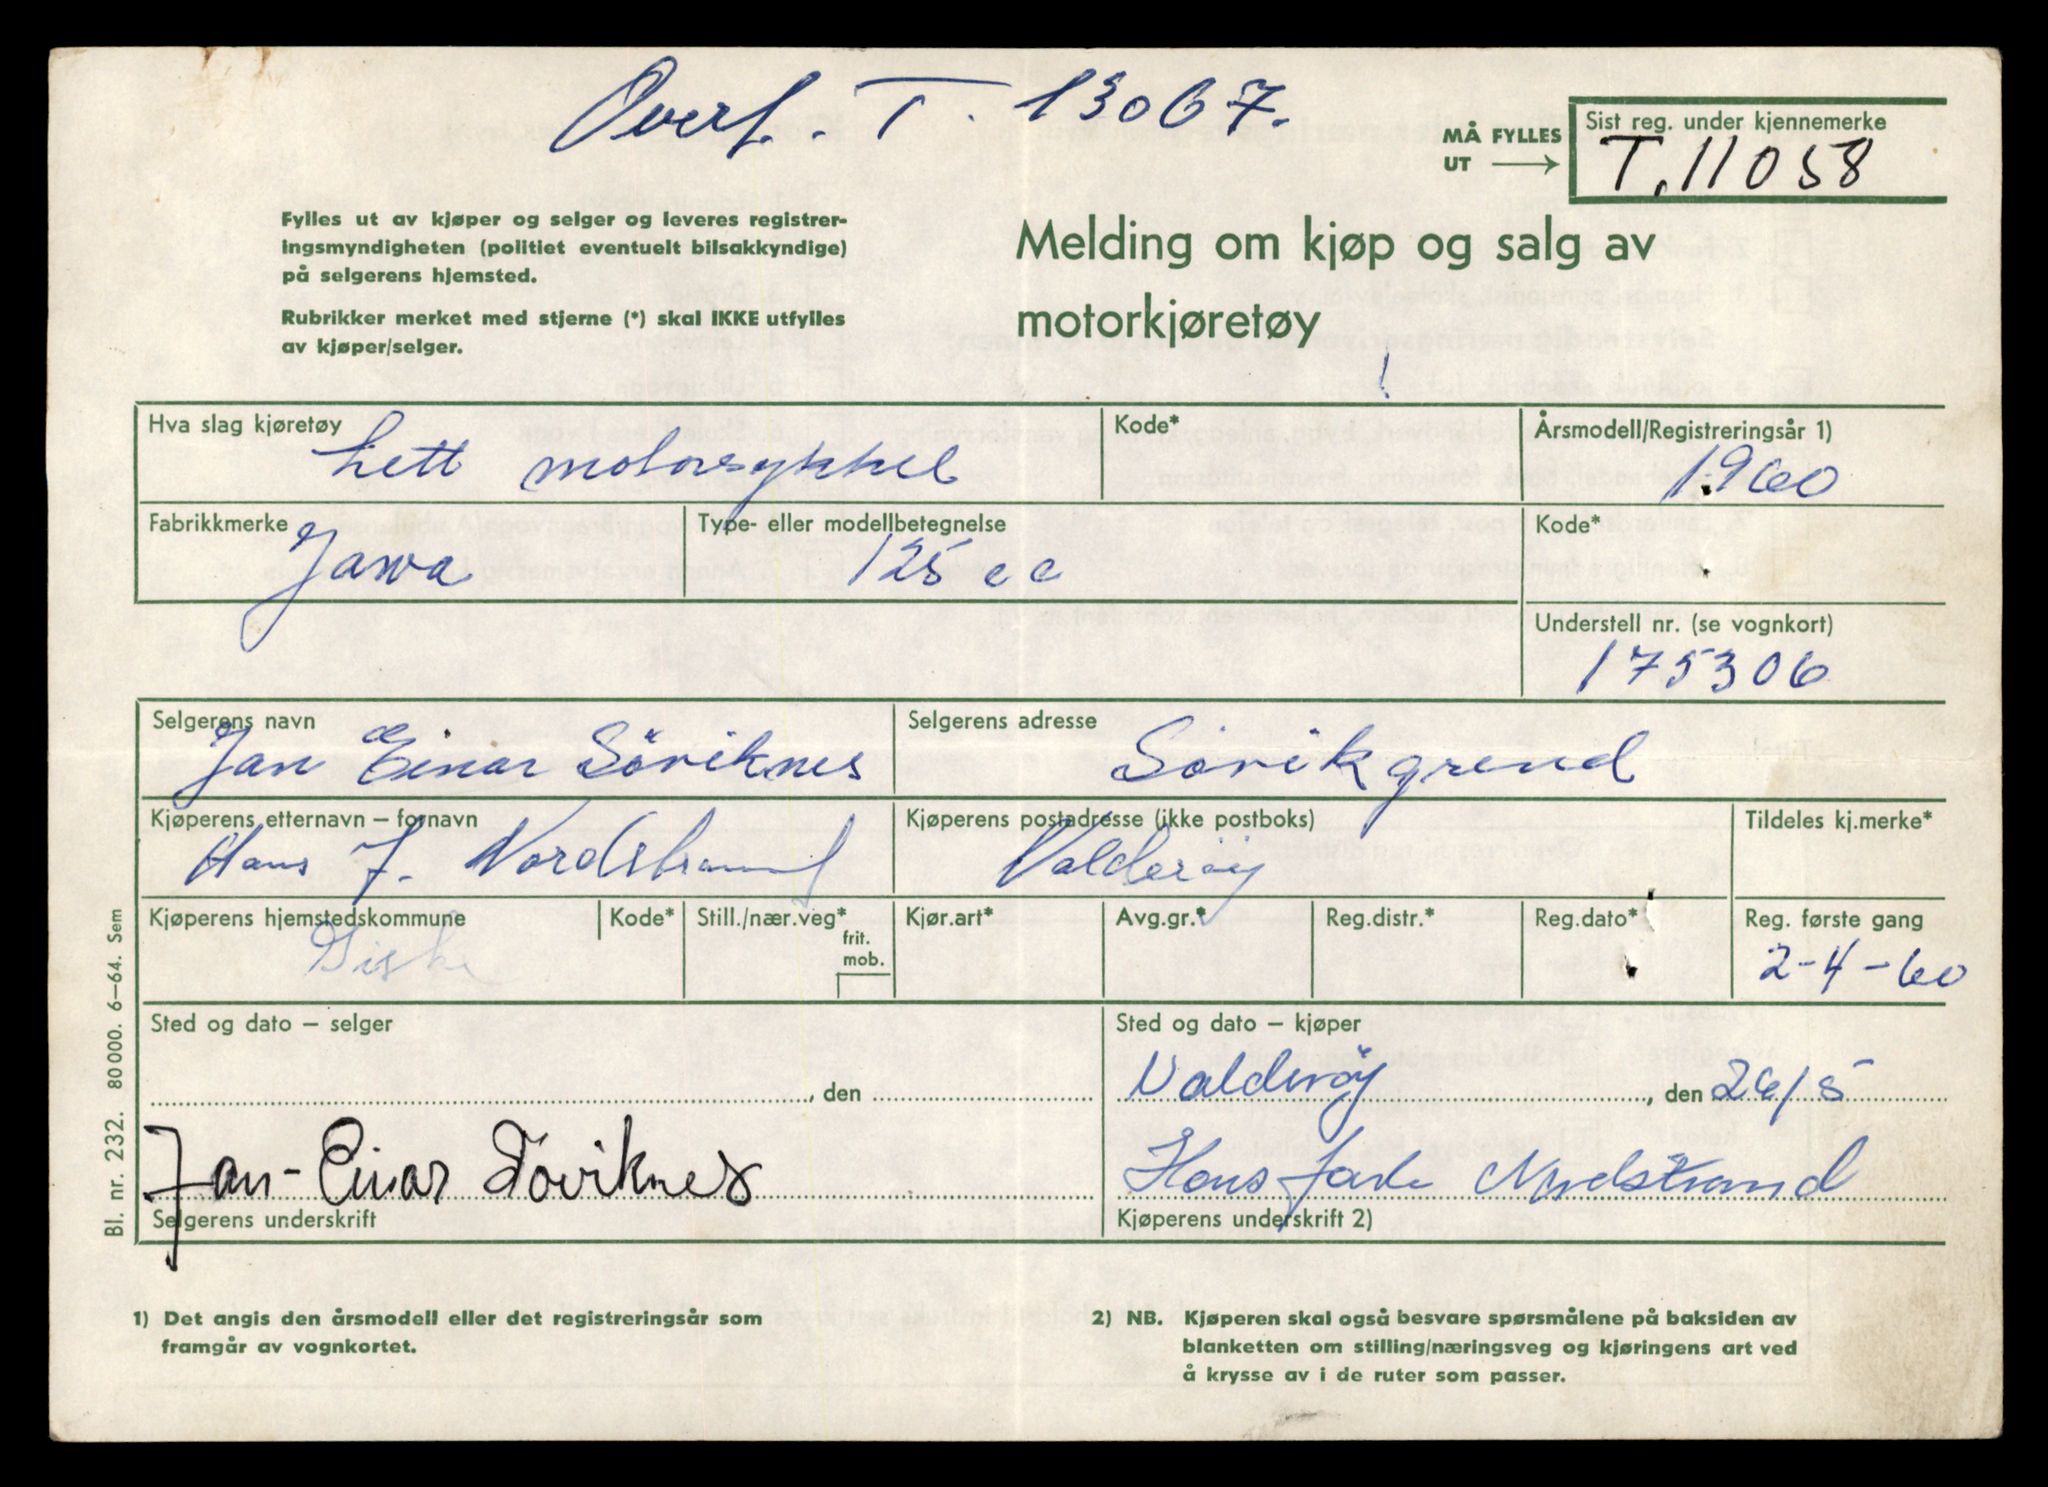 Overf. T. 13067.
MÅ FYLLES UT
Sist reg. under kjennemerke
T. 11058
Fylles ut av kjøper og selger og leveres registrer-
ingsmyndigheten (politiet eventuelt bilsakkyndige)
på selgerens hjemsted.
Rubrikker merket med stjerne (*) skal IKKE utfylles
av kjøper/selger.
Melding om kjøp og salg av
motorkjøretøy
Hva slag kjøretøy Kode* Årsmodell/Registreringsår 1)
Lett motorsykkel 1960
Fabrikkmerke Type- eller modellbetegnelse Kode*
Jawa 125 cc
Understell nr. (se vognkort)
175306
Selgerens navn Selgerens adresse
Jan Einar Søviknes Søvikgrend
Kjøperens etternavn – fornavn Kjøperens postadresse (ikke postboks) Tildeles kj.merke*
Hans J. Nordstrand Valderøy
Kjøperens hjemstedskommune Kode* Still./nær.veg* frit. mob. Kjør.art* Avg.gr.* Reg.distr.* Reg.dato* Reg. første gang
Giske 2-4-60
Sted og dato – selger Sted og dato – kjøper
, den Valderøy, den 26/5
Jan-Einar Søviknes Hans Nordstrand
Selgerens underskrift Kjøperens underskrift 2)
Bl. nr. 232. 80 000. 6–64. Sem
1) Det angis den årsmodell eller det registreringsår som
framgår av vognkortet.
2) NB. Kjøperen skal også besvare spørsmålene på baksiden av
blanketten om stilling/næringsveg og kjøringens art ved
å krysse av i de ruter som passer.